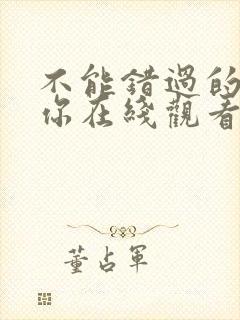 不能错过的
你在线觀看
董占軍